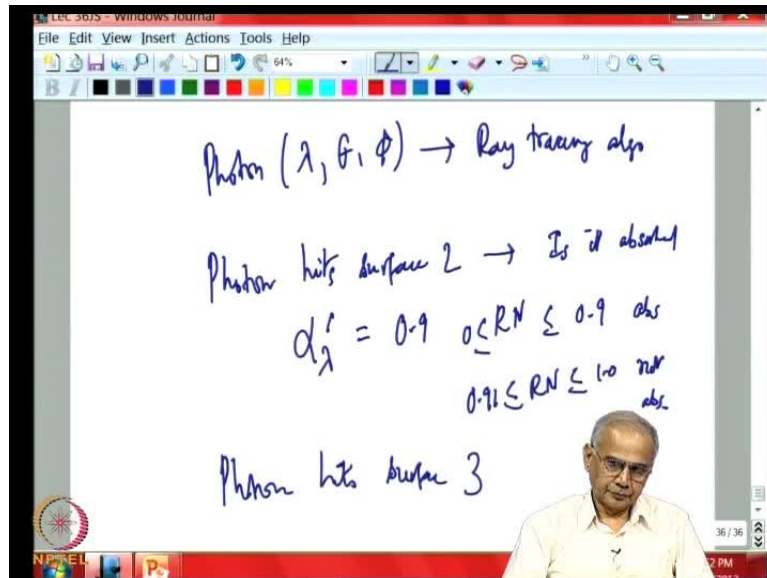 Lec 36JS - Windows Journal
File Edit View Insert Actions Tools Help
64%
B I
Photon (λ, θ, Φ) → Ray tracing algo
Photon hits surface 2 → Is it absorbed
α'λ = 0.9 0 ≤ RN ≤ 0.9 abs
0.91 ≤ RN ≤ 1.0 not
abs.
Photon hits surface 3
36 / 36
NPTEL
2 PM